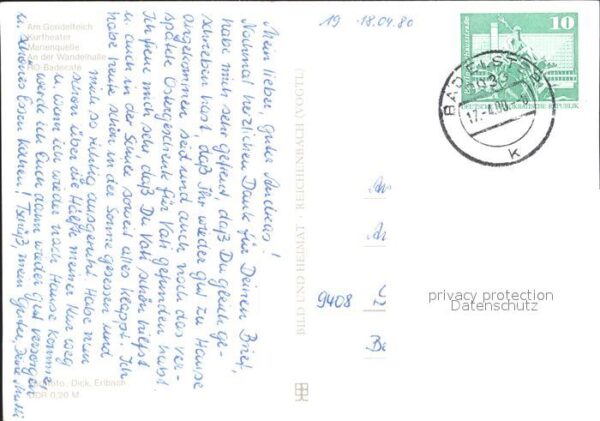 Am Gondelteich
Kurtheater
Marienquelle
An der Wandelhalle
HO-Badecafe
19 -18.04.80
Mein lieber, guter Andreas!
Nochmal herzlichen Dank für Deinen Brief,
habe mich sehr gefreut, daß Du gleich ge-
schrieben hast, daß Ihr wieder gut zu Hause
angekommen seid und auch noch das ver-
spätete Ostergeschenk für Vati gefunden habt.
Ich freue mich sehr daß Du Vati schön hilfst
u. auch in der Schule soweit alles klappt. Ich
habe heute schön in der Sonne gesessen und
mich so richtig ausgeruht. Habe nun
schon über die Hälfte meiner Kur weg
u. wenn ich wieder nach Hause komme,
werde ich Euch dann wieder gut versorgen
u. schönes Essen kochen! Tschüß, mein Guter, Deine Mutti
Dick, Erlbach
DDR 0,20 M
BILD UND HEIMAT · REICHENBACH (VOGTL)
10
DEUTSCHE DEMOKRATISCHE REPUBLIK
BAD ELSTER
17.-4.80
k
9408
privacy protection
Datenschutz